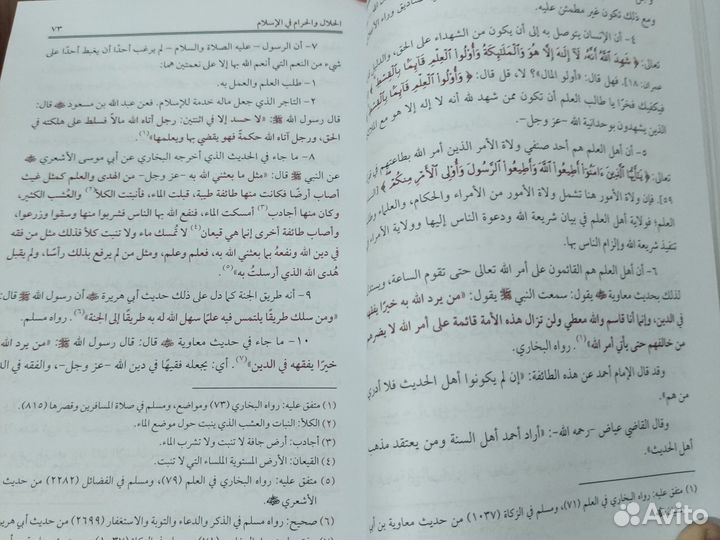 ومع ذلك تكون غير مطمئن عليه.
٤- أن الإنسان يتوصل به إلى أن يكون من الشهداء على الحق، والدليل
تعالى: ﴿شَهِدَ ٱللَّهُ أَنَّهُۥ لَآ إِلَٰهَ إِلَّا هُوَ وَٱلْمَلَٰٓئِكَةُ وَأُو۟لُوا۟ ٱلْعِلْمِ قَآئِمًۢا بِٱلْقِسْطِ﴾
عمران: ١٨]. فهل قال: «أولو المال»؟ لا، قل قال: ﴿وَأُو۟لُوا۟ ٱلْعِلْمِ قَآئِمًۢا بِٱلْقِسْطِ﴾
فيكفيك فخرًا يا طالب العلم أن تكون ممن شهد لله أنه لا إله إلا هو مع
الذين يشهدون بوحدانية الله -عز وجل-.
٥- أن أهل العلم هم أحد صنفي ولاة الأمر الذين أمر الله بطاعتهم في
تعالى: ﴿يَٰٓأَيُّهَا ٱلَّذِينَ ءَامَنُوٓا۟ أَطِيعُوا۟ ٱللَّهَ وَأَطِيعُوا۟ ٱلرَّسُولَ وَأُو۟لِى ٱلْأَمْرِ مِنكُمْ﴾
٥٩]. فإن ولاة الأمور هنا تشمل ولاة الأمور من الأمراء والحكام، والعلماء
العلم؛ فولاية أهل العلم في بيان شريعة الله ودعوة الناس إليها وولاية الأمراء
تنفيذ شريعة الله وإلزام الناس بها.
٦- أن أهل العلم هم القائمون على أمر الله تعالى حتى تقوم الساعة،
لذلك بحديث معاوية ﷺ يقول: سمعت النبي ﷺ يقول: «من يرد الله به خيرًا يفقهه
في الدين، وإنما أنا قاسم والله معطي ولن تزال هذه الأمة قائمة على أمر الله لا يضرهم
من خالفهم حتى يأتي أمر الله»(١). رواه البخاري.
وقد قال الإمام أحمد عن هذه الطائفة: «إن لم يكونوا أهل الحديث فلا أدري
من هم».
وقال القاضي عياض -رحمه الله-: «أراد أحمد أهل السنة ومن يعتقد مذهب
أهل الحديث».
(١) متفق عليه: رواه البخاري في العلم (٧١)، ومسلم في الزكاة (١٠٣٧) من حديث معاوية بن أبي
الحلال والحرام في الإسلام
٧٣
٧- أن الرسول -عليه الصلاة والسلام- لم يرغب أحدًا أن يغبط أحدًا على
شيء من النعم التي أنعم الله بها إلا على نعمتين هما:
١- طلب العلم والعمل به.
٢- التاجر الذي جعل ماله خدمة للإسلام. فعن عبد الله بن مسعود ﷺ قال:
قال رسول الله ﷺ: «لا حسد إلا في اثنتين: رجل آتاه الله مالاً فسلط على هلكته في
الحق، ورجل آتاه الله حكمةً فهو يقضي بها ويعلمها»(١).
٨- ما جاء في الحديث الذي أخرجه البخاري عن أبي موسى الأشعري ﷺ
عن النبي ﷺ قال: «مثل ما بعثني الله به -عز وجل- من الهدى والعلم كمثل غيث
أصاب أرضًا فكانت منها طائفة طيبة، قبلت الماء، فأنبتت الكلأ(٢) والعُشب الكثير،
وكان منها أجادب(٣) أمسكت الماء، فنفع الله بها الناس فشربوا منها وسقوا وزرعوا،
وأصاب طائفة أخرى إنما هي قيعان(٤) لا تُمسك ماء ولا تنبت كلأ فذلك مثل من فقه
في دين الله ونفعهُ بما بعثني الله به، فعلم وعلم، ومثل من لم يرفع بذلك رأسًا، ولم يقبل
هُدى الله الذي أرسلتُ به»(٥).
٩- أنه طريق الجنة كما دل على ذلك حديث أبي هريرة ﷺ أن رسول الله ﷺ قال:
«ومن سلك طريقًا يلتمس فيه علمًا سهل الله له به طريقًا إلى الجنة»(٦). رواه مسلم.
١٠- ما جاء في حديث معاوية ﷺ قال: قال رسول الله ﷺ: «من يرد الله به
خيرًا يفقهه في الدين»(٧). أي: يجعله فقيهًا في دين الله -عز وجل-، والفقه في الدين
(١) متفق عليه: رواه البخاري (٧٣) ومواضع، ومسلم في صلاة المسافرين وقصرها (٨١٥).
(٢) الكلأ: النبات والعشب الذي ينبت حول موضع الماء.
(٣) أجادب: أرض جافة لا تنبت ولا تشرب الماء.
(٤) القيعان: الأرض المستوية الملساء التي لا تنبت.
(٥) متفق عليه: رواه البخاري في العلم (٧٩)، ومسلم في الفضائل (٢٢٨٢) من حديث
الأشعري ﷺ
(٦) صحيح: رواه مسلم في الذكر والدعاء والتوبة والاستغفار (٢٦٩٩) من حديث أبي هريرة
Avito